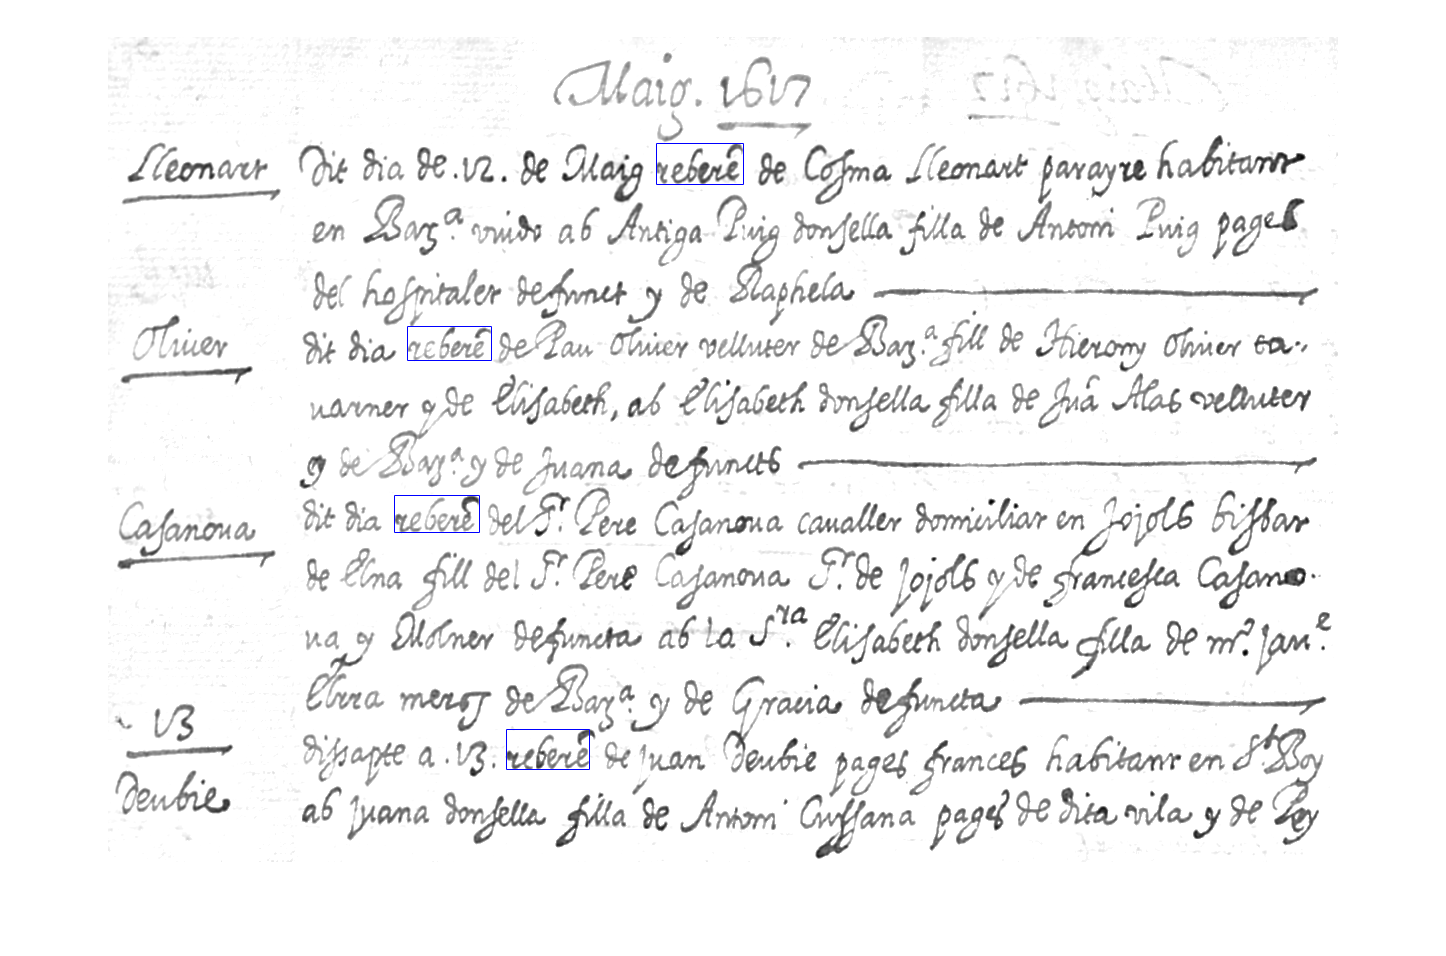 Maig. 1617
Lleonart
Dit dia de .12. de Maig reberē de Cosma Lleonart parayre habitant
en Barᵃ. viudo ab Antiga Puig donsella filla de Antoni Puig pages
del hospitalet defunct y de Raphela
Oliuer
dit dia reberē de Pau Oliuer velluter de Barᵃ. fill de Hierony Oliuer ta-
uarner y de Elisabeth, ab Elisabeth donsella filla de Juā Alas velluter
y de Barᵃ. y de Juana defuncts
Casanoua
dit dia reberē del Sʳ. Pere Casanoua caualler domiciliat en Jojols bisbat
de Elna fill del Sʳ. Pere Casanoua Sʳ. de Jojols y de francesca Casano-
ua y Molner defuncta ab la Sʳᵃ. Elisabeth donsella filla de mʳ. Jauᵉ.
Ebrra mercʳ de Barᵃ. y de Gracia defuncta
13
dissapte a .13. reberē de Juan Deubie pages frances habitant en Sᵗ Boy
Deubie
ab Juana donsella filla de Antoni Cussana pages de dita vila y de Pey